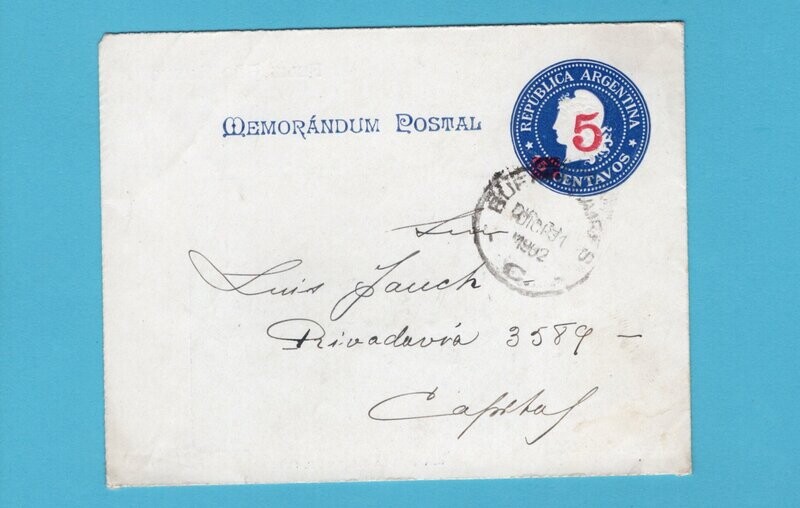 REPUBLICA ARGENTINA
5
CENTAVOS
MEMORÁNDUM POSTAL
BUENOS AIRES
1902
C.
Luis Jauch
Rivadavia 3589 –
Capital